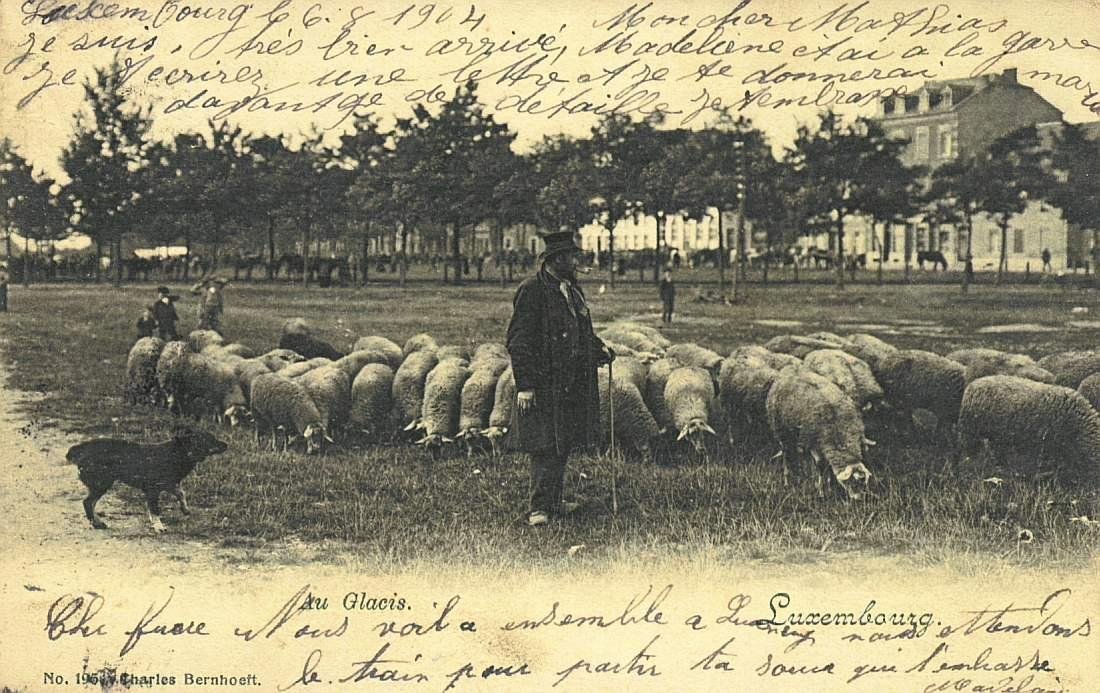 Luxembourg le 6. 8 1904 Mon cher Mathias
je suis, très bien arrivé, Madeleine et ai a la garre
je t'ecrirez une lettre et je te donnerai
davantge de détaille je t'embrasse
Au Glacis. Luxembourg.
Cher frere Nous voila ensemble a nous attendons
le train pour partir ta soeur qui t'embrasse
No. 195. Charles Bernhoeft.